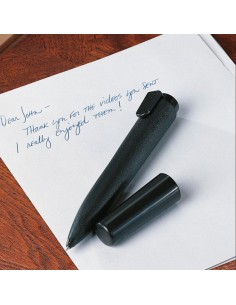 Dear John –
Thank you for the videos you sent.
I really enjoyed them!